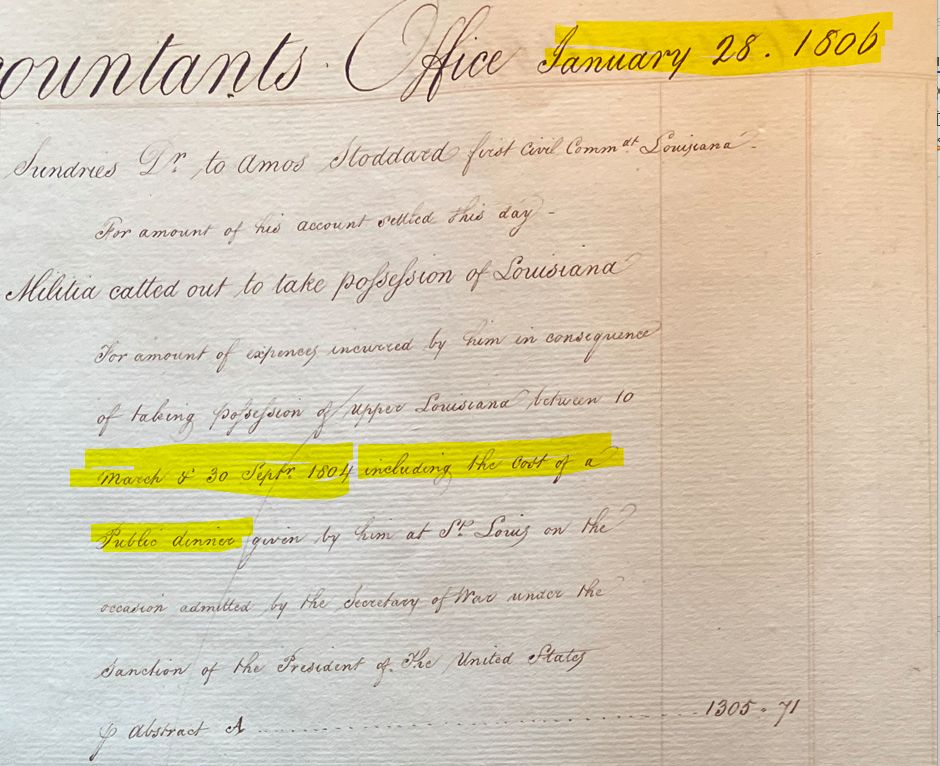 countants Office January 28. 1806
Sundries Dr. to Amos Stoddard first Civil Commdt Louisiana
For amount of his account settled this day -
Militia called out to take possession of Louisiana
For amount of expences incurred by him in consequence
of taking possession of Upper Louisiana between 10
March & 30 Septr. 1804 including the cost of a
Public dinner given by him at St. Louis on the
occasion admitted by the Secretary of War under the
Sanction of the President of The United States
Abstract A ........................ 1305.71